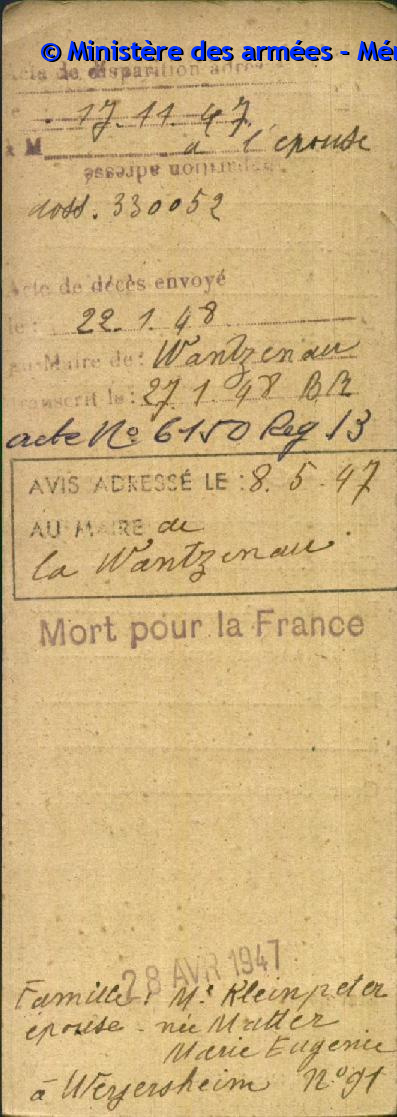 © Ministère des armées - Mém
Acte de disparition adre
17.11.47
à M à l'épouse
disparition adresse
doss. 330052
Acte de décès envoyé
le : 22.1.48
au Maire de : Wantzenau
transcrit le : 27 1 48 BR
acte No 6150 Reg 13
AVIS ADRESSÉ LE : 8.5.47
AU MAIRE de
la Wantzenau.
Mort pour la France
28 AVR 1947
Famille : Me Kleinpeter
épouse - née Matter
Marie Eugenie
à Weyersheim No 91